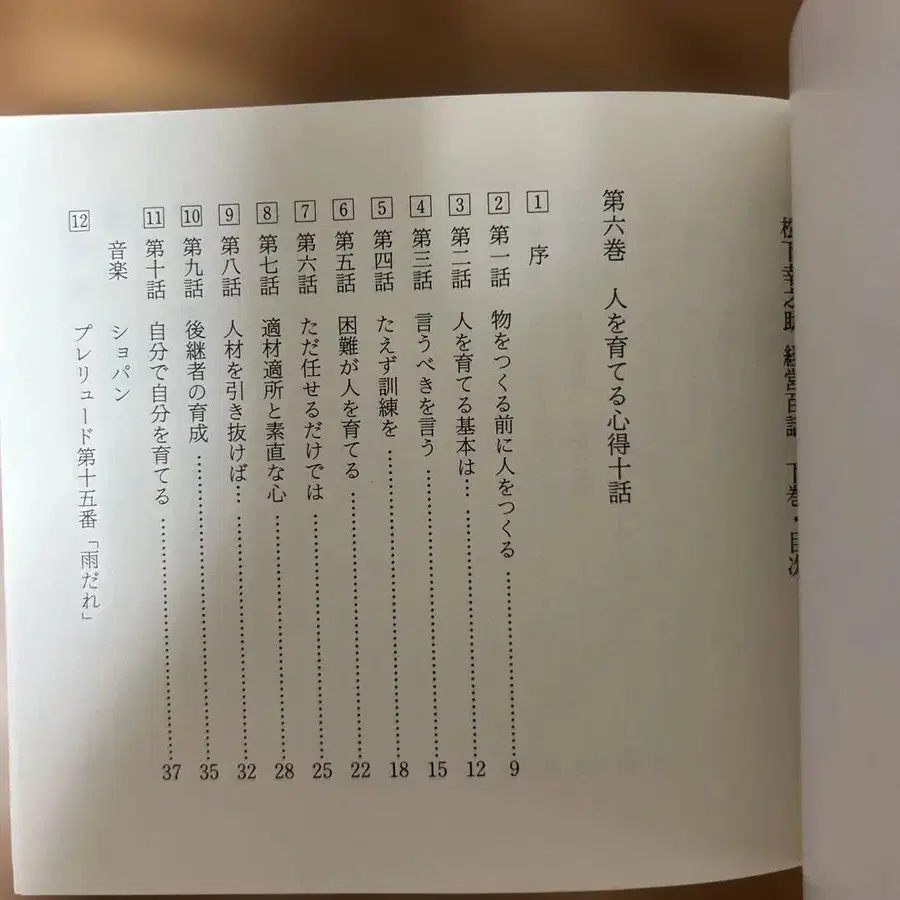 松下幸之助 経営百話 下巻・目次
第六巻 人を育てる心得十話
1 序
2 第一話 物をつくる前に人をつくる……………… 9
3 第二話 人を育てる基本は………………… 12
4 第三話 言うべきを言う……………… 15
5 第四話 たえず訓練を……………… 18
6 第五話 困難が人を育てる……………… 22
7 第六話 ただ任せるだけでは……………… 25
8 第七話 適材適所と素直な心……………… 28
9 第八話 人材を引き抜けば………………… 32
10 第九話 後継者の育成……………… 35
11 第十話 自分で自分を育てる……………… 37
音楽 ショパン
12 プレリュード第十五番「雨だれ」